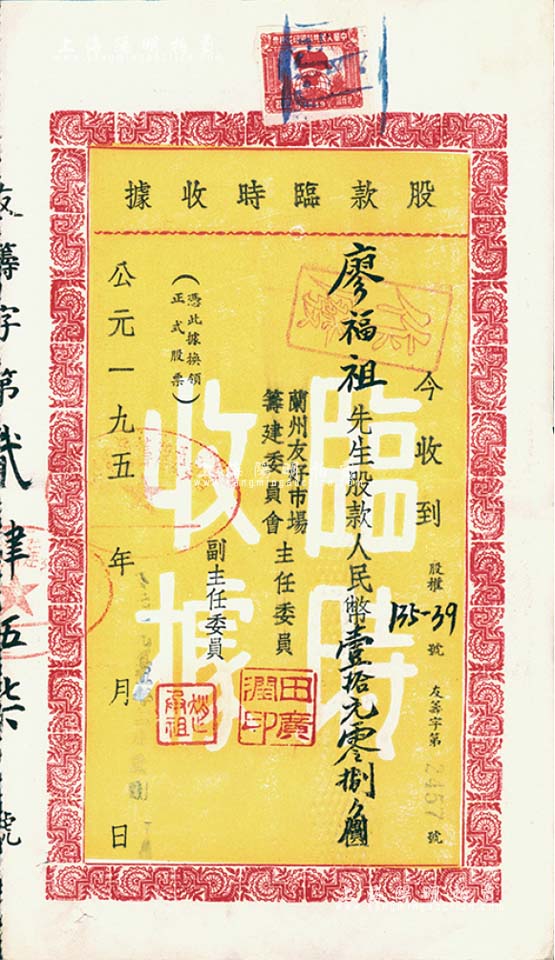 股款臨時收據
今收到 股權 135-39 號 友籌字第 2457 號
廖福祖先生股款人民幣壹拾元零捌角
蘭州友好市場
籌建委員會
主任委員
田廣潤印
副主任委員
(憑此據換領
正式股票)
公元一九五 年 月 日
臨時
收據
友籌字第貳肆五 號